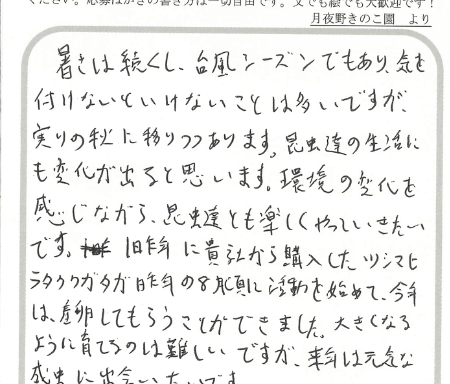 ください。応募はがきの書き方は一切自由です。文でも絵でも大歓迎です!
月夜野きのこ園 より
暑さは続くし、台風シーズンでもあり、気を
付けないといけないことは多いですが、
実りの秋に移りつつあります。昆虫達の生活に
も変化が出ると思います。環境の変化を
感じながら、昆虫達とも楽しくやっていきたい
です。1昨年に貴社から購入したツシマヒ
ラタクワガタが昨年の8月頃に活動を始めて、今年
は、産卵してもらうことができました。大きくなる
ように育てるのは難しいですが、来年は元気な
成虫に出会いたいです